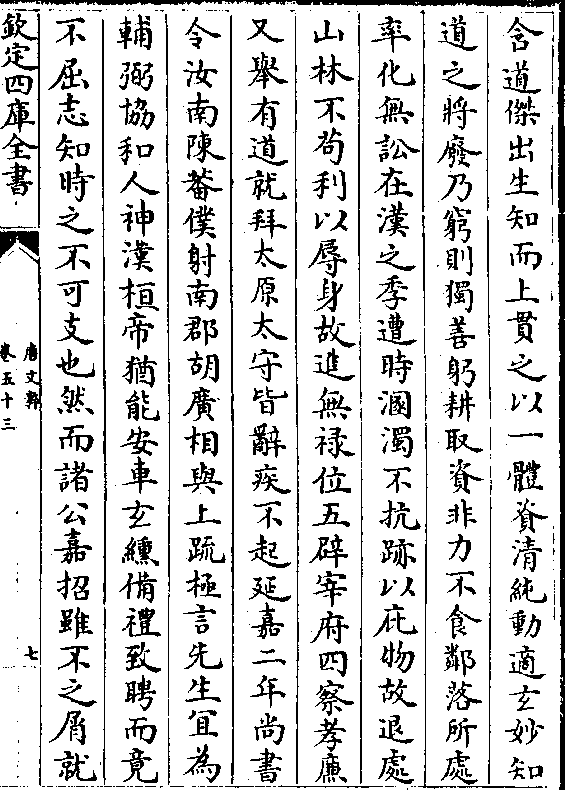 含道傑出生知而上貫之以一體資清純動適玄妙知
道之將廢乃窮則獨善躬耕取資非力不食鄰落所處
率化無訟在漢之季遭時溷濁不抗跡以庇物故退處
山林不茍利以辱身故進無禄位五辟宰府四察孝廉
又舉有道就拜太原太守皆辭疾不起延嘉二年尚書
令汝南陳蕃僕射南郡胡廣相與上疏極言先生宜為
輔弼協和人神漢桓帝猶能安車玄纁備禮致聘而竟
不屈志知時之不可支也然而諸公嘉招雖不之屑就
欽定四庫全書
唐文粹
卷五十三
七